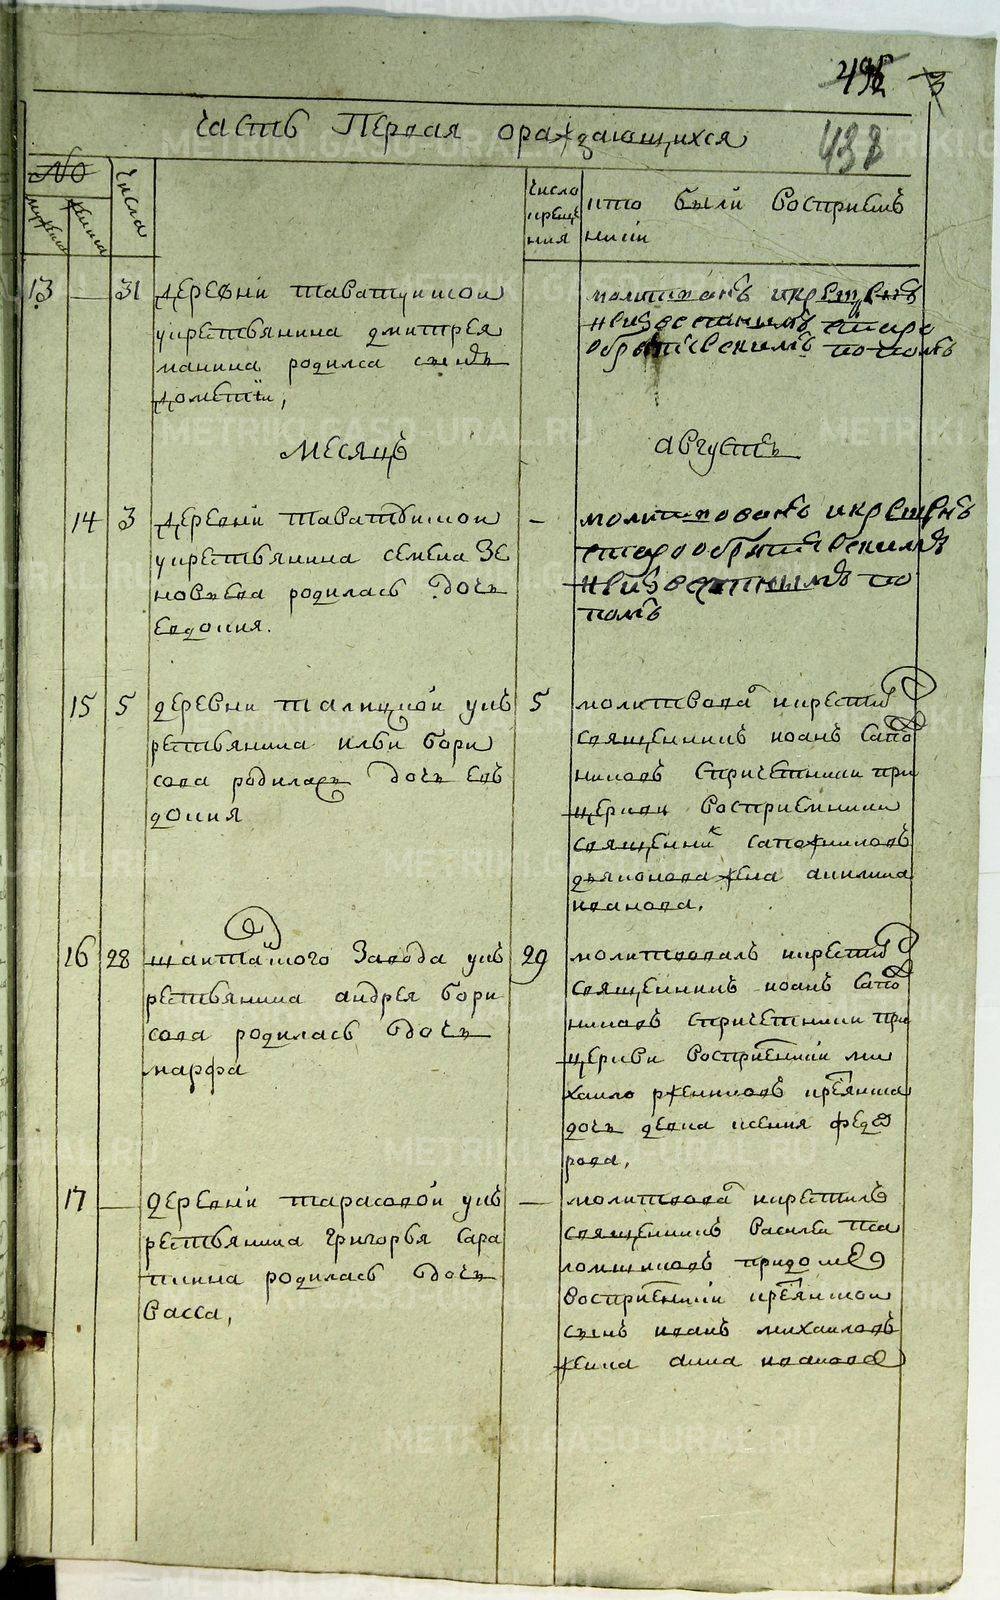 438
часть Первая ораждающихся
No
мужска
женска
числа
число
креще
ния
кто были восприем
ники
13 — 31 деревни таватуиской
укрестьянина дмитрея
панина родился сынъ
дометiи,
молитвованъ икрещенъ
неизвестнымъ старо
обрятческимъ попомъ
месяцъ августъ
14 3 деревни таватуиской
укрестьянина семена зе
новьева родилась дочь
евдокия.
— молитвованъ икрещенъ
старообрятческимъ
неизвестнымъ по
помъ
15 5 деревни талицкой укъ
рестьянина ильи бори
сова родилась дочь евъ
докия
5 молитвова икрести
священникъ иоанъ сапо
никовъ спричетники при
церкви восприемники
священник сапожниковъ
дьяконова жена акилина
иванова.
16 28 шаитанского завода укъ
рестьянина андрея бори
сова родилась дочь
марфа
29 молитвовалъ икрести
священникъ иоанъ сапо
никовъ спричетники при
церкви восприемники ми
хаило
дочь девка ксения федо
рова,
17 — деревни тарасовой укъ
рестьянина григорья сара
пкина родилась дочь
васса,
— молитвова икрестилъ
священникъ василеи пса
ломщиковъ придоме
восприемники
сынъ иванъ михаиловъ
жена анна иванова
METRIKI.GASO-URAL.RU